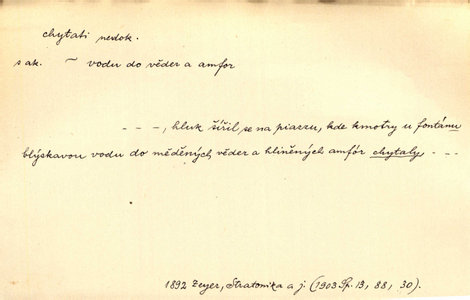 chytati nedok.
s ak. ~ vodu do věder a amfor
- - -, hluk šířil se na piazzu, kde kmotry u fontánu
blýskavou vodu do měděných věder a hliněných amfór chytaly, - - -
1892 Zeyer, Stratonika a j. (1903 Sp. 13, 88, 30).